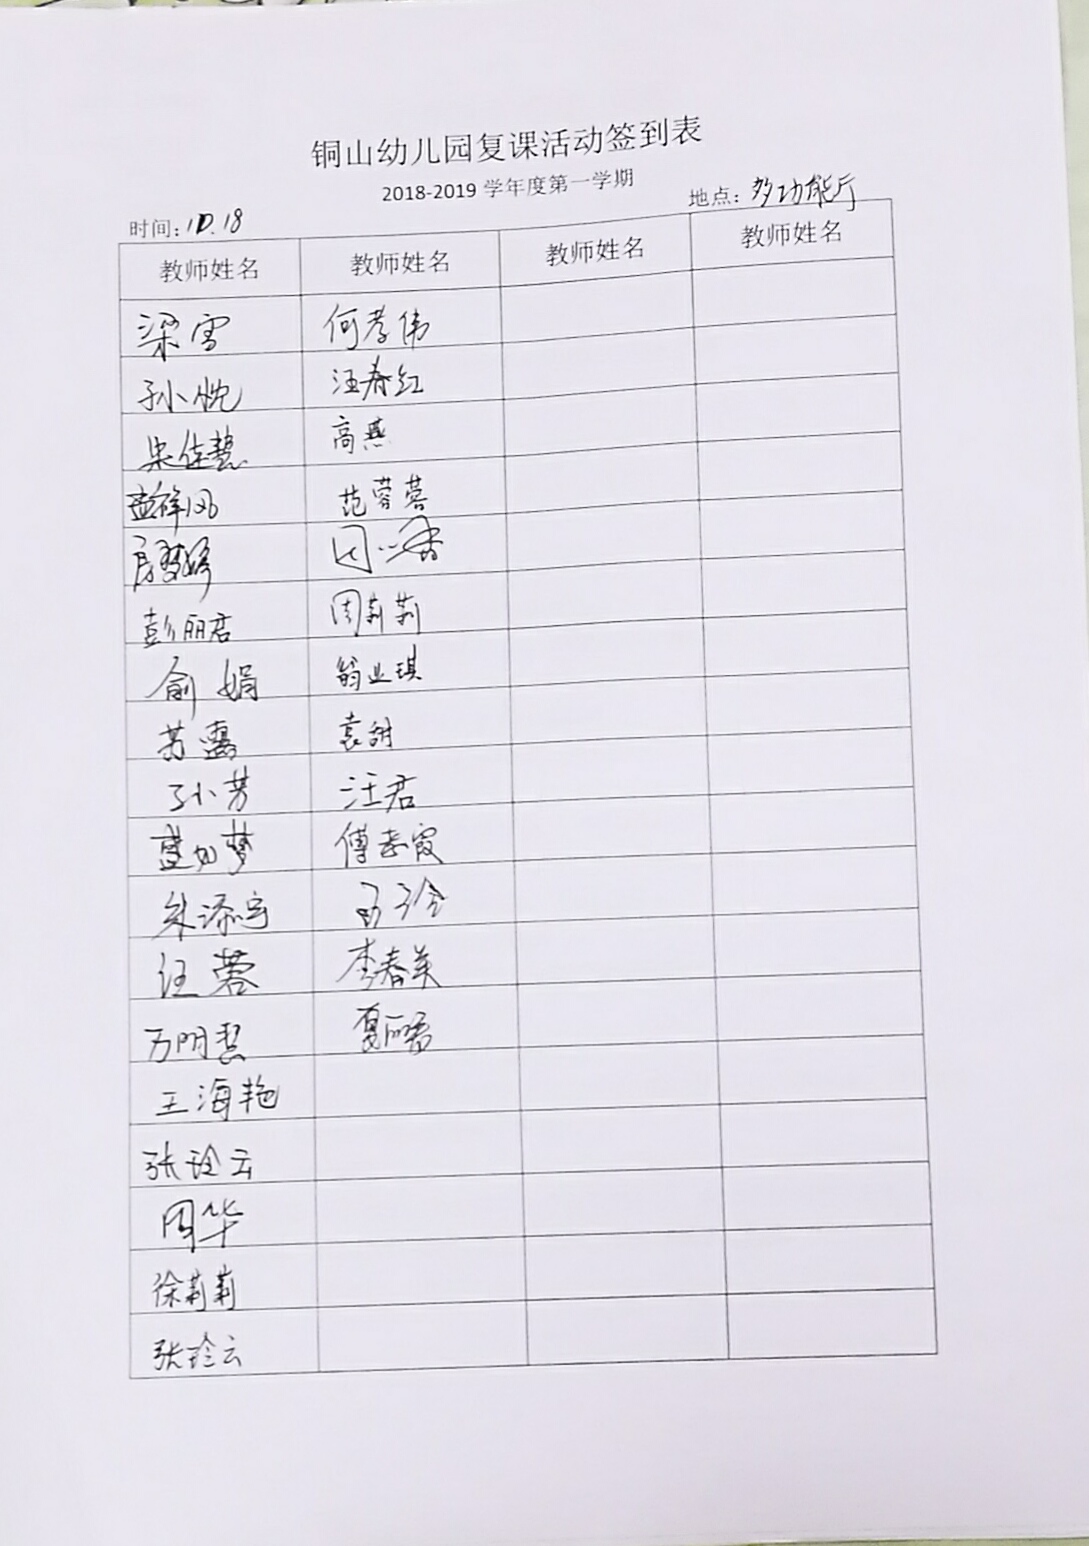 铜山幼儿园复课活动签到表
2018-2019 学年度第一学期
时间:10.18 地点:多功能厅
教师姓名 教师姓名 教师姓名 教师姓名
梁雪 何孝伟
孙小悦 汪春红
朱佳慧 高燕
孟祥凤 范蓉蓉
房梦婷
彭丽君 周莉莉
俞娟 翁业琪
芳露 袁甜
孙小芳 汪君
葛如梦 傅孝霞
朱添宇
汪蓉 李春英
万明慧 夏丽君
王海艳
张玲云
周华
徐莉莉
张玲云